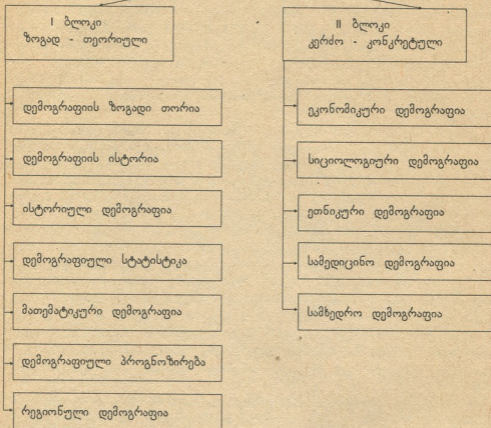 I ბლოკი
ზოგად - თეორიული
დემოგრაფიის ზოგადი თორია
დემოგრაფიის ისტორია
ისტორიული დემოგრაფია
დემოგრაფიული სტატისტიკა
მათემატიკური დემოგრაფია
დემოგრაფიული პროგნოზირება
რეგიონული დემოგრაფია
II ბლოკი
კერძო - კონკრეტული
ეკონომიკური დემოგრაფია
სიციოლოგიური დემოგრაფია
ეთნიკური დემოგრაფია
სამედიცინო დემოგრაფია
სამხედრო დემოგრაფია